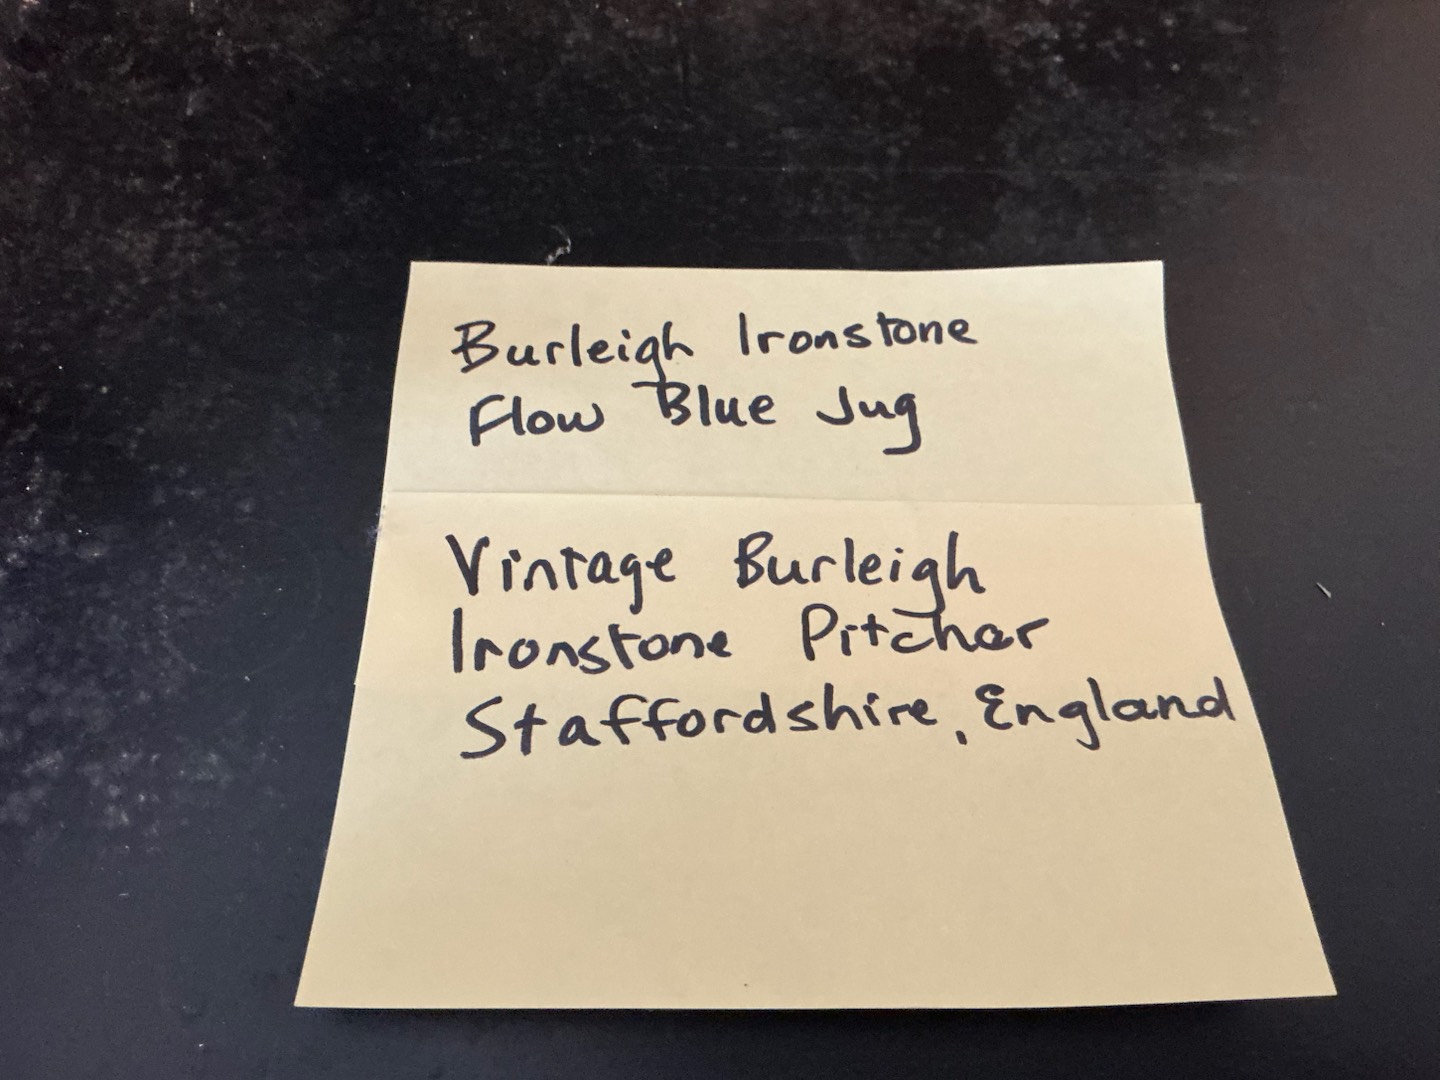 Burleigh Ironstone
Flow Blue Jug
Vintage Burleigh
Ironstone Pitcher
Staffordshire, England